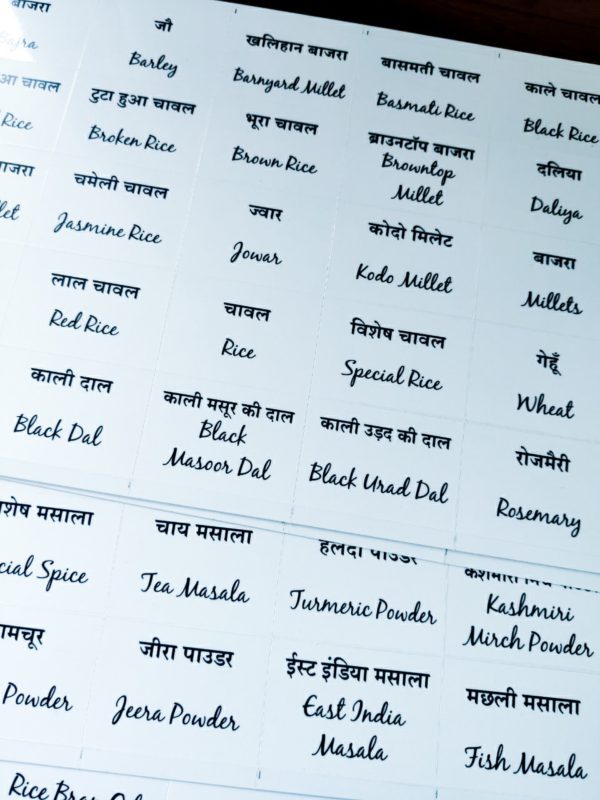 बाजरा
Bajra
जौ
Barley
खलिहान बाजरा
Barnyard Millet
बासमती चावल
Basmati Rice
काले चावल
Black Rice
चावल
Rice
टुटा हुआ चावल
Broken Rice
भूरा चावल
Brown Rice
ब्राउनटॉप बाजरा
Browntop
Millet
दलिया
Daliya
चमेली चावल
Jasmine Rice
ज्वार
Jowar
कोदो मिलेट
Kodo Millet
बाजरा
Millets
लाल चावल
Red Rice
चावल
Rice
विशेष चावल
Special Rice
गेहूँ
Wheat
काली दाल
Black Dal
काली मसूर की दाल
Black
Masoor Dal
काली उड़द की दाल
Black Urad Dal
रोजमैरी
Rosemary
मसाला
Spice
चाय मसाला
Tea Masala
Turmeric Powder
Kashmiri
Mirch Powder
Powder
जीरा पाउडर
Jeera Powder
ईस्ट इंडिया मसाला
East India
Masala
मछली मसाला
Fish Masala
Rice Bran